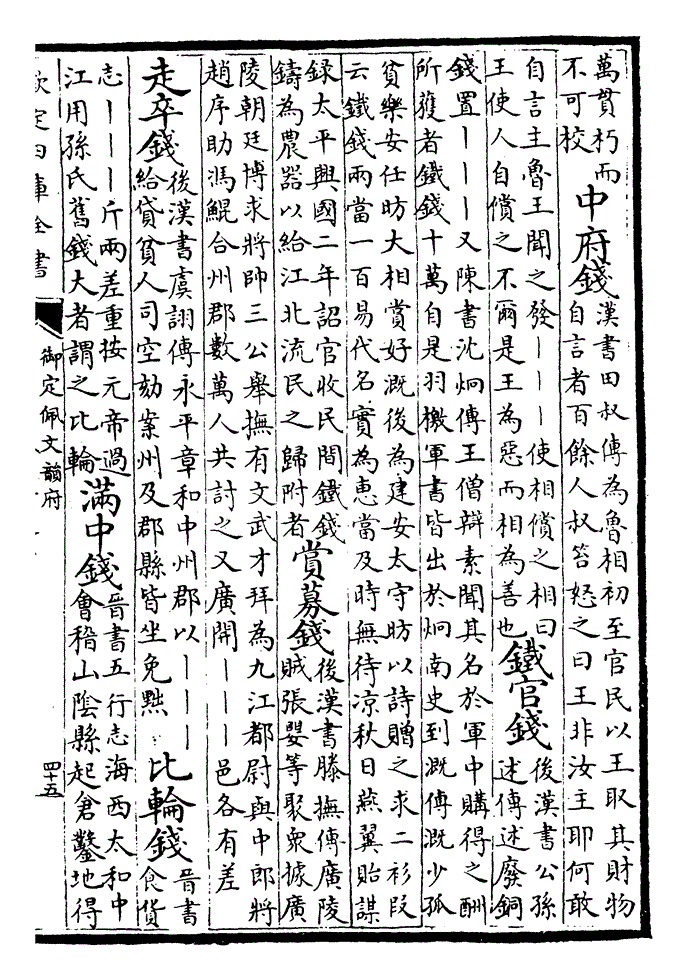 萬貫朽而
不可校
中府錢
漢書田叔傳為魯相初至官民以王取其財物
自言者百餘人叔笞怒之曰王非汝主耶何敢
自言主魯王聞之發｜｜｜使相償之相曰
王使人自償之不爾是王為惡而相為善也
鐵官錢
後漢書公孫
述傳述廢銅
錢置｜｜｜又陳書沈炯傳王僧辯素聞其名於軍中購得之酬
所獲者鐵錢十萬自是羽檄軍書皆出於炯南史到溉傳溉少孤
貧樂安任昉大相賞好溉後為建安太守昉以詩贈之求二衫段
云鐵錢兩當一百易代名實為惠當及時無待凉秋日燕翼貽謀
録太平興國二年詔官收民間鐵錢
鑄為農器以給江北流民之歸附者
賞募錢
後漢書滕撫傳廣陵
賊張嬰等聚衆據廣
陵朝廷博求將帥三公舉撫有文武才拜為九江都尉與中郎將
趙序助馮鯤合州郡數萬人共討之又廣開｜｜｜邑各有差
走卒錢
後漢書虞詡傳永平章和中州郡以｜｜｜
給貸貧人司空劾案州及郡縣皆坐免黜
比輪錢
晉書
食貨
志｜｜｜斤兩差重按元帝過
江用孫氏舊錢大者謂之比輪
滿中錢
晉書五行志海西太和中
會稽山陰縣起倉鑿地得
欽定四庫全書
御定佩文韻府
四十五